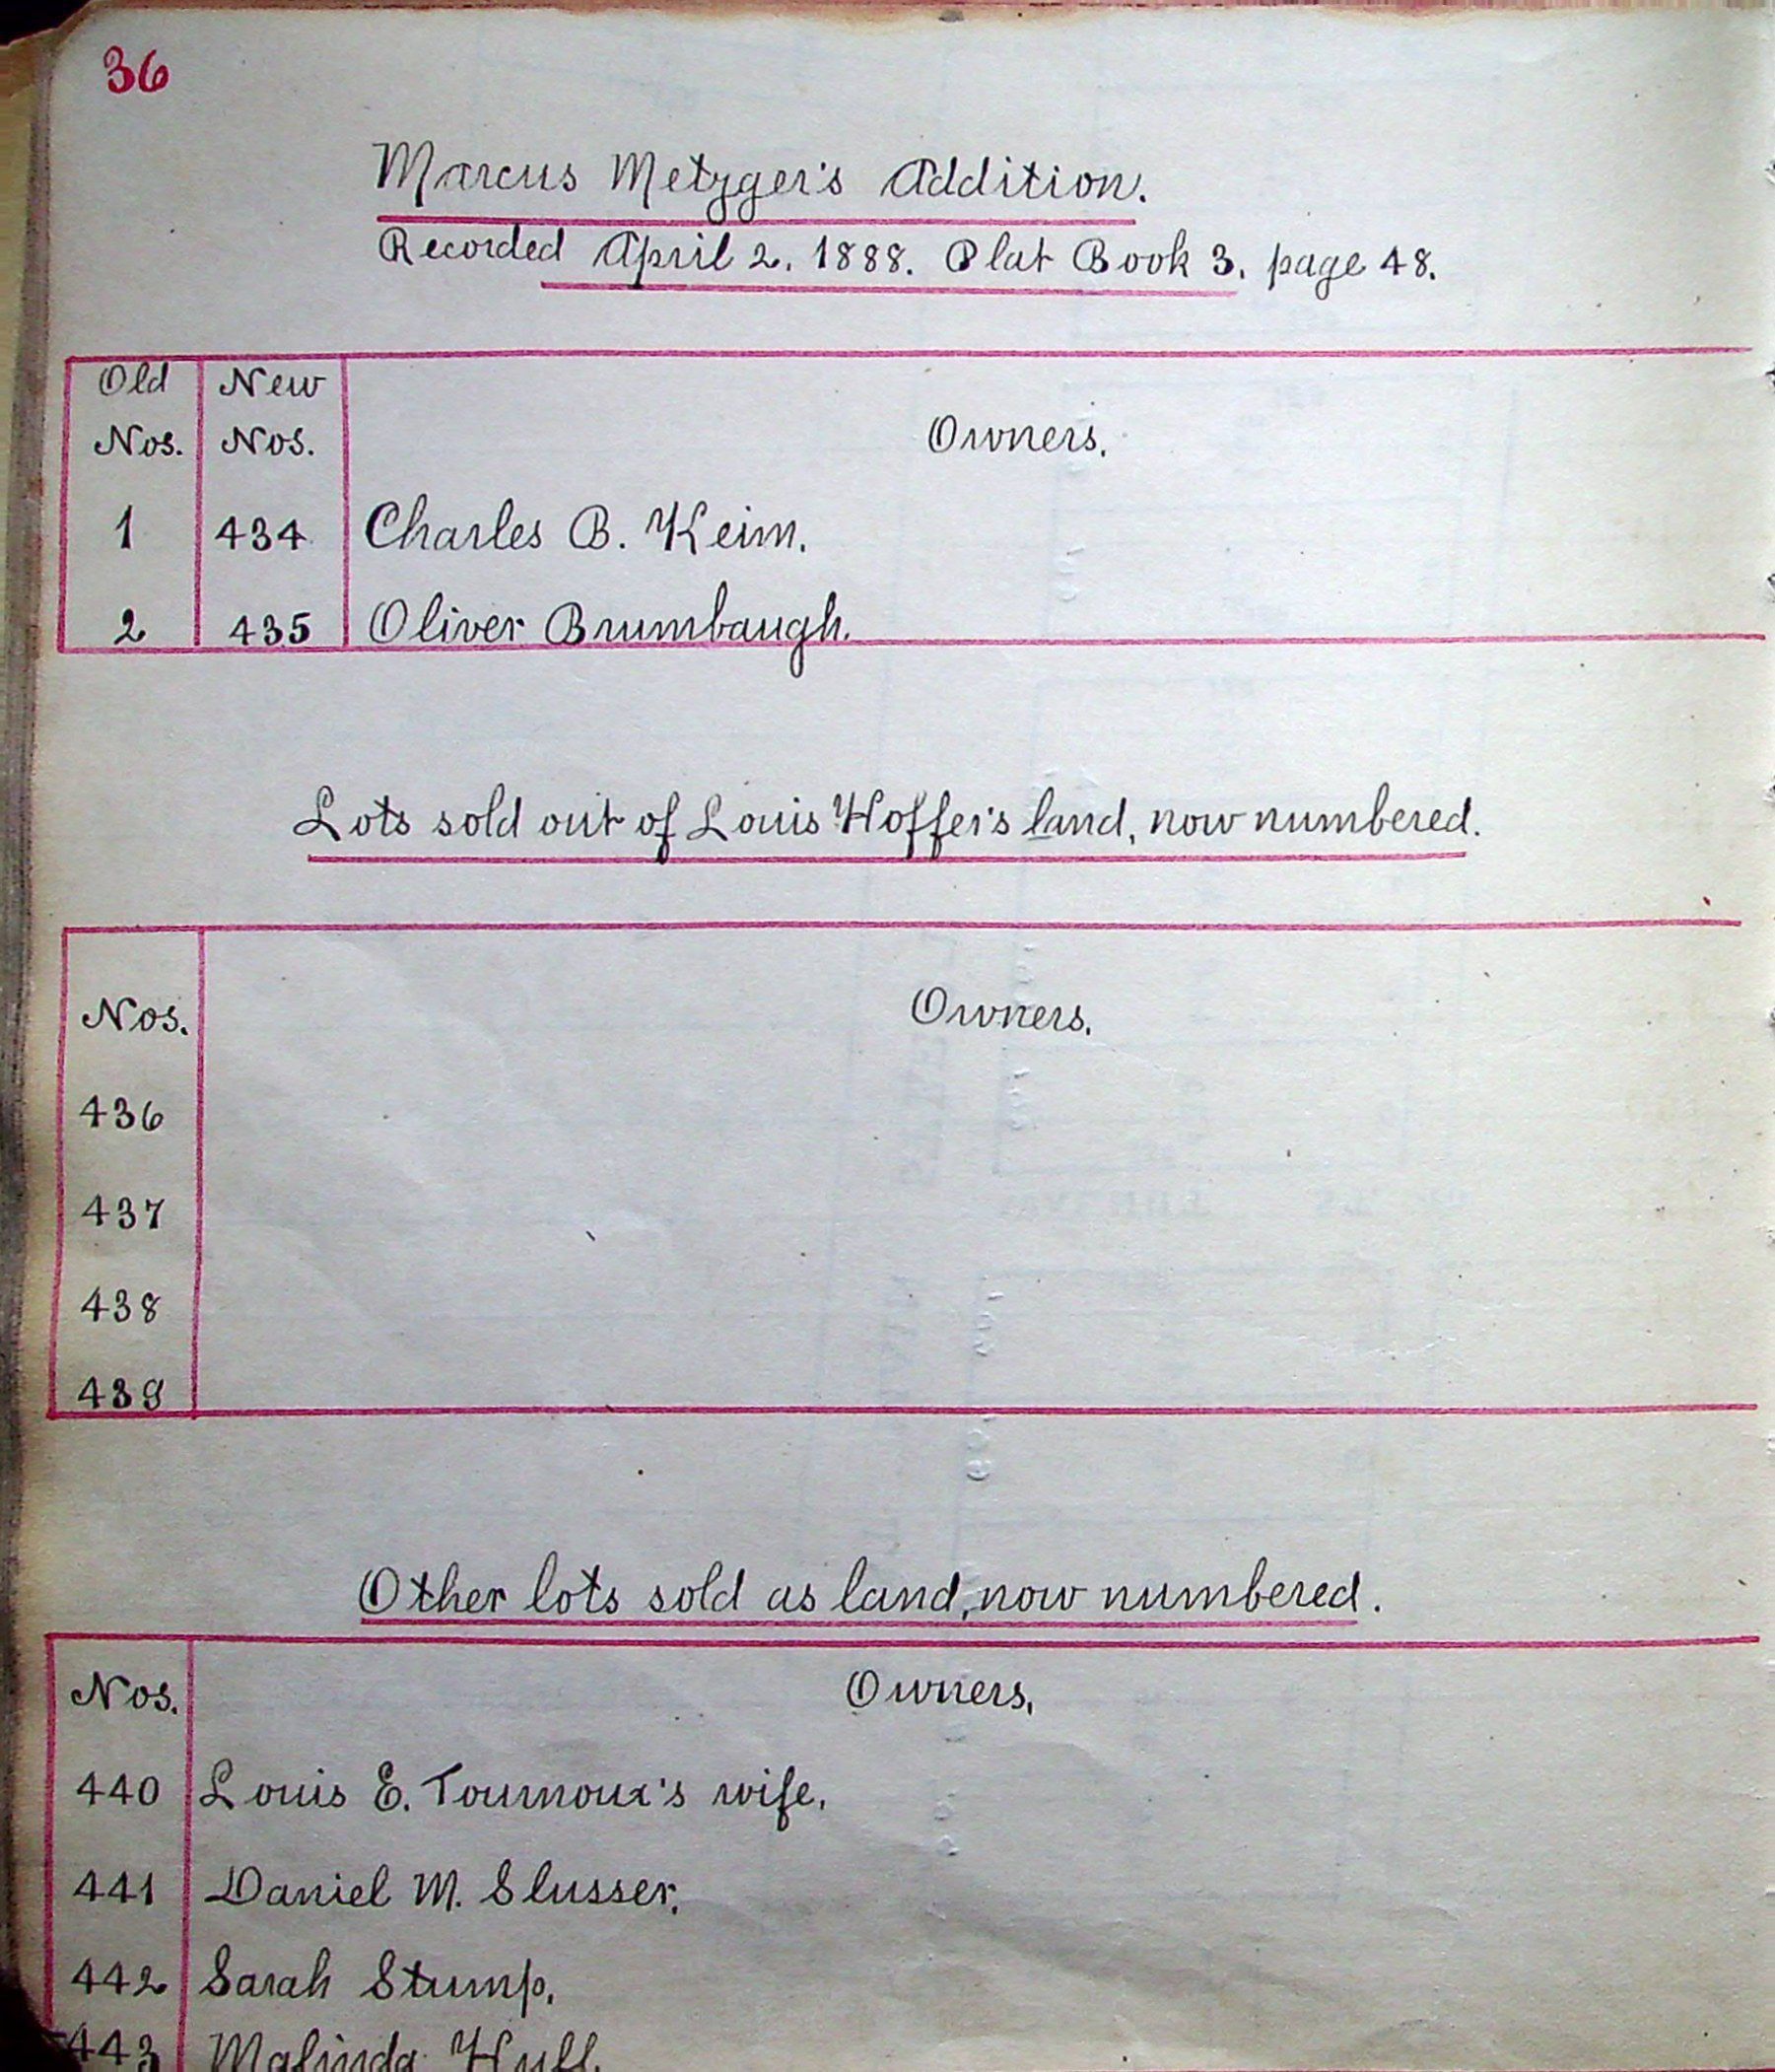 36
Marcus Metzger's Addition.
Recorded April 2, 1888. Plat Book 3, page 48.
Old New
Nos. Nos. Owners.
1 434 Charles B. Keim.
2 435 Oliver Brumbaugh.
Lots sold out of Louis Hoffer's land, now numbered.
Nos. Owners.
436
437
438
439
Other lots sold as land, now numbered.
Nos. Owners.
440 Louis E. Tournoux's wife.
441 Daniel M. Slusser.
442 Sarah Stump.
443 Malinda